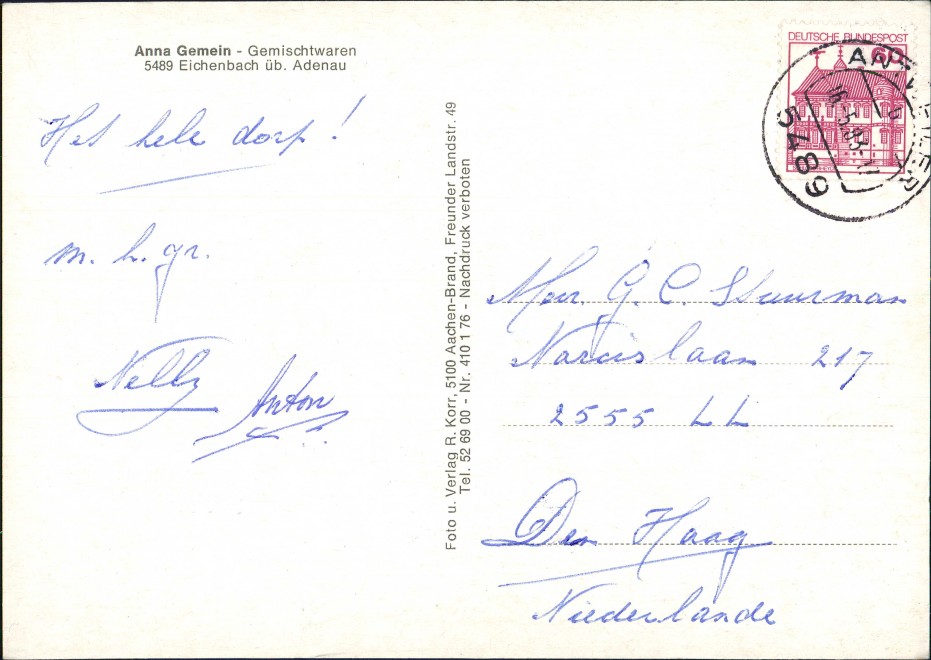 Anna Gemein - Gemischtwaren
5489 Eichenbach üb. Adenau
Het hele dorp!
m. h. gr.
Nelly
Anton
Foto u. Verlag R. Korr, 5100 Aachen-Brand, Freunder Landstr. 49
Tel. 52 69 00 - Nr. 410 1 76 - Nachdruck verboten
DEUTSCHE BUNDESPOST
60
5489
Mevr. G. C. Stuurman
Narcislaan 217
2555 LL
Den Haag
Niederlande